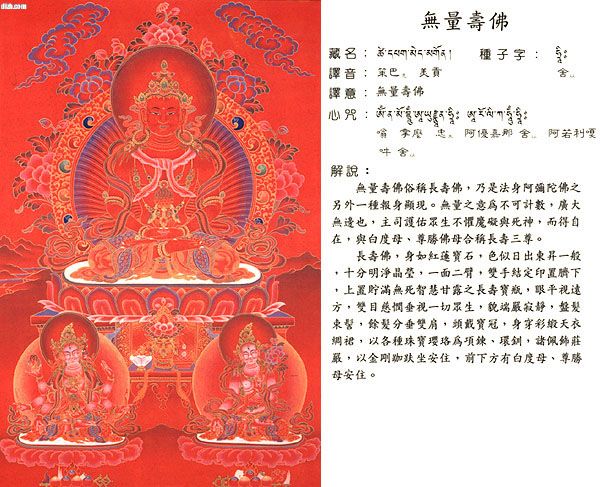 無量壽佛
藏名： ཚེ་དཔག་མེད་མགོན། 種子字： ཧྲཱིཿ
譯音： 策巴 美貢 舍
譯意： 無量壽佛
心咒：
嗡 阿優嘉那 舍 阿若利
吽 舍
解說：
無量壽佛俗稱長壽佛，乃是法身阿彌陀佛之
另外一種報身顯現。無量之意為不可計數，廣大
無邊也，主司護佑眾生不懼魔礙與死神，而得自
在，與白度母、尊勝佛母合稱長壽三尊。
長壽佛，身如紅蓮寶石，色似日出東昇一般
，十分明淨晶瑩，一面二臂，雙手結定印置臍下
，上置貯滿無死智慧甘露之長壽寶瓶，眼平視遠
方，雙目慈憫垂視一切眾生，貌端嚴寂靜，盤髮
束髻，餘髮分垂雙肩，頭戴寶冠，身穿彩緞天衣
綢裙，以各種珠寶瓔珞為項鍊、環釧，諸佩飾莊
嚴，以金剛跏趺坐安住，前下方有白度母、尊勝
母安住。